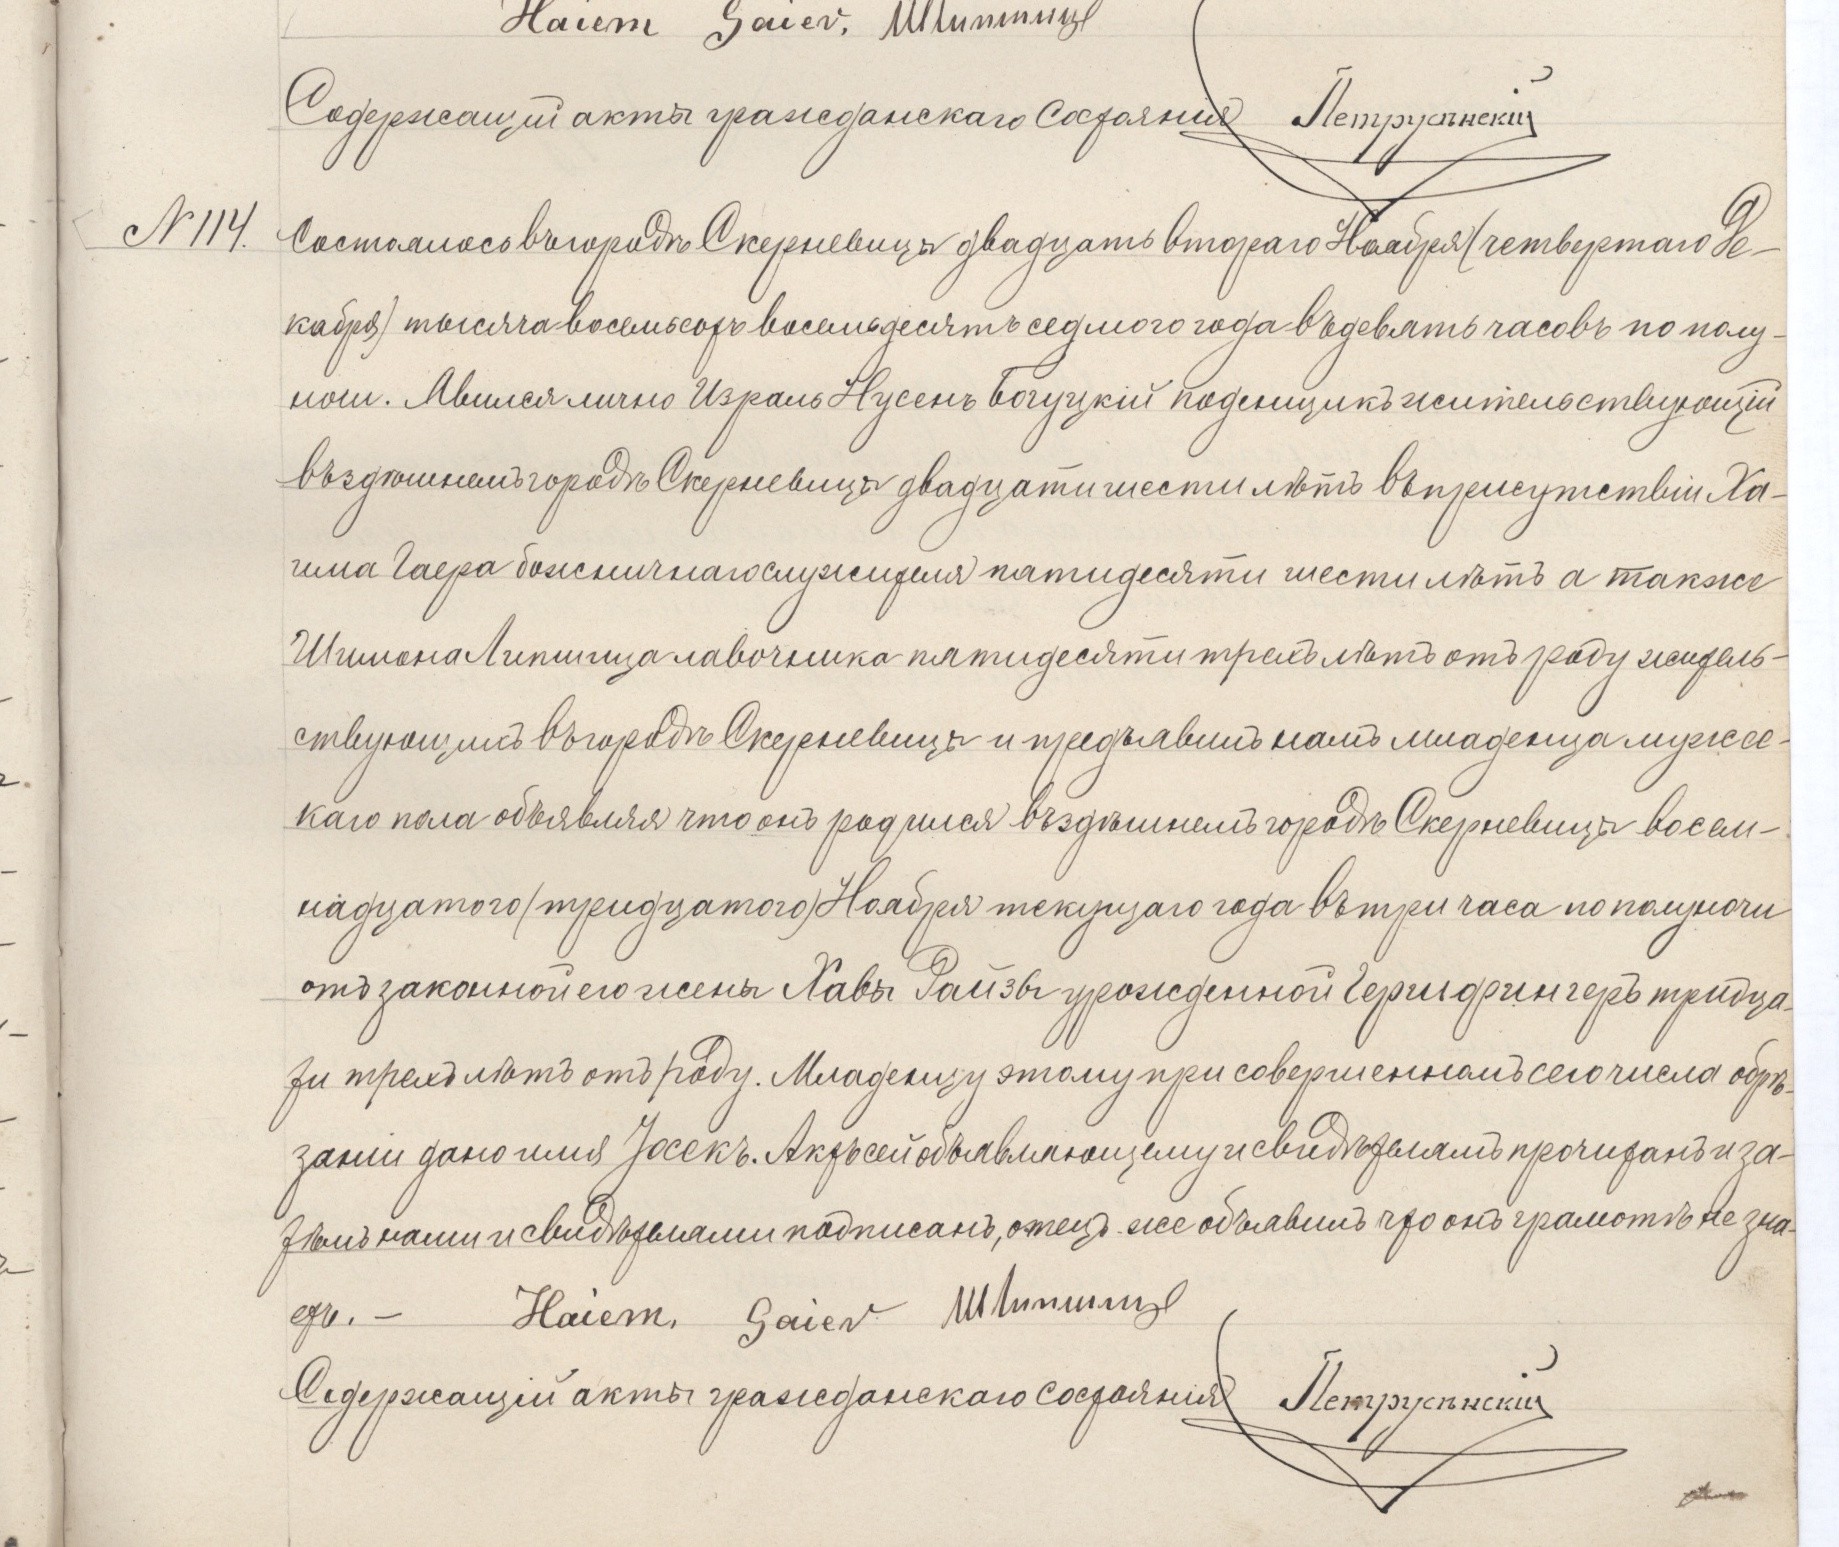 Haiem Gaier. Ш Липшиць
Содержащій акты гражданскаго состоянія Петрусѣнскій
№ 114. Состоялось въ городѣ Скерневицы двадцать втораго Ноября (четвертаго Де-
кабря) тысяча восемьсотъ восемьдесятъ седмого года въ девять часовъ по полу-
ночи. Явился лично Израль Нусенъ Богуцкій поденщикъ жительствующій
въ здѣшнемъ городѣ Скерневицы двадцати шести лѣтъ въ присутствіи Ха-
има Гаера божничнаго служителя пятидесяти шести лѣтъ а также
Шимона Липшица лавочника пятидесяти трехъ лѣтъ отъ роду житель-
ствующихъ въ городѣ Скерневицы и предъявилъ намъ младенца мужес-
каго пола объявляя что онъ родился въ здѣшнемъ городѣ Скерневицы восем-
надцатого (тридцатого) Ноября текущаго года въ три часа по полуночи
отъ законной его жены Хавы Райзы урожденной Герцфингеръ тридца-
ти трехъ лѣтъ отъ роду. Младенцу этому при совершенномъ сего числа обрѣ-
заніи дано имя Іосекъ. Актъ сей объявляющему и свидѣтелямъ прочитанъ и за-
тѣмъ нами и свидѣтелями подписанъ, отецъ же объявилъ что онъ грамотѣ не зна-
етъ. — Haiem. Gaier Ш Липшиць
Содержащій акты гражданскаго состоянія Петрусѣнскій